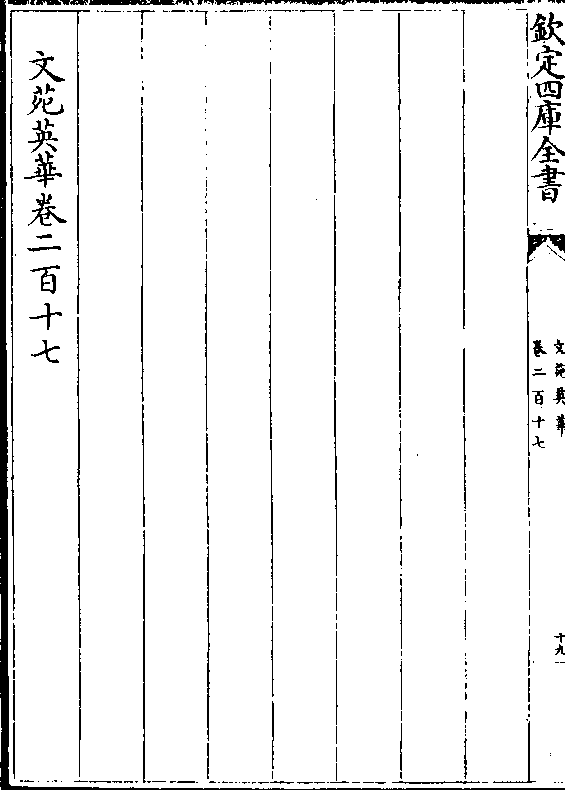 欽定四庫全書
文苑英華
卷二百十七
十九
文苑英華卷二百十七